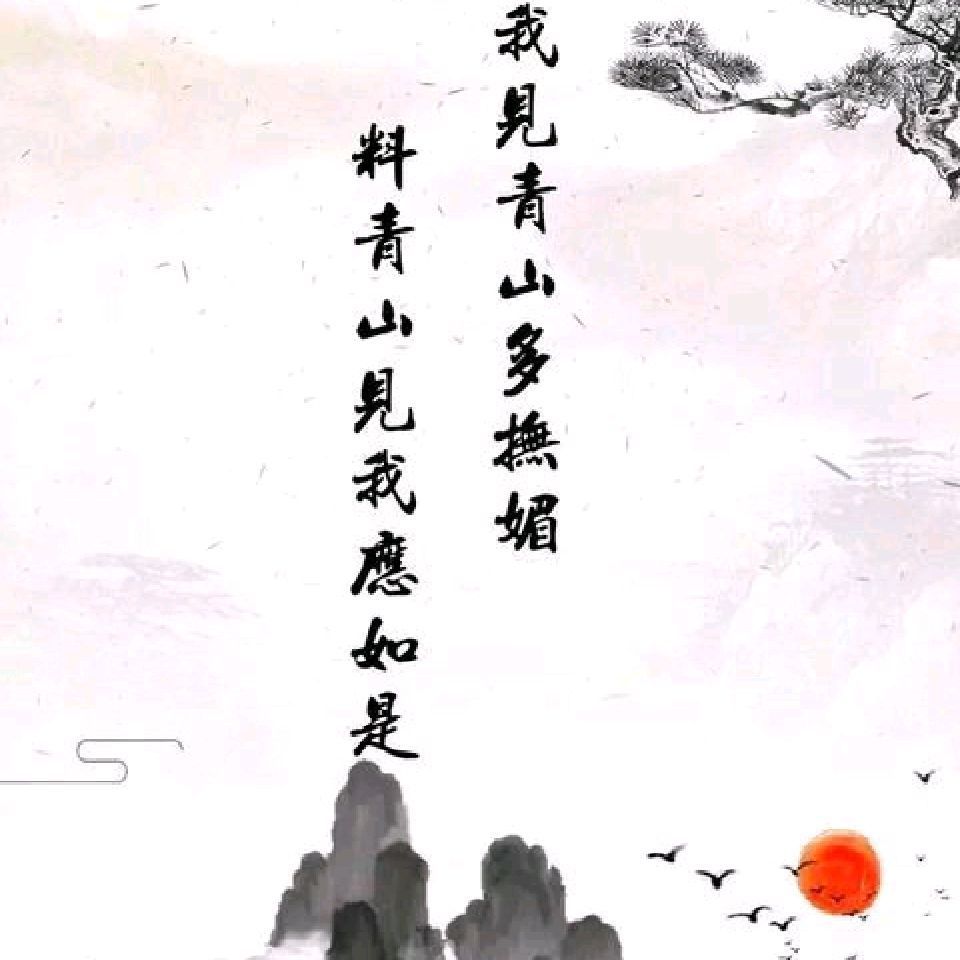 我見青山多撫媚
料青山見我應如是